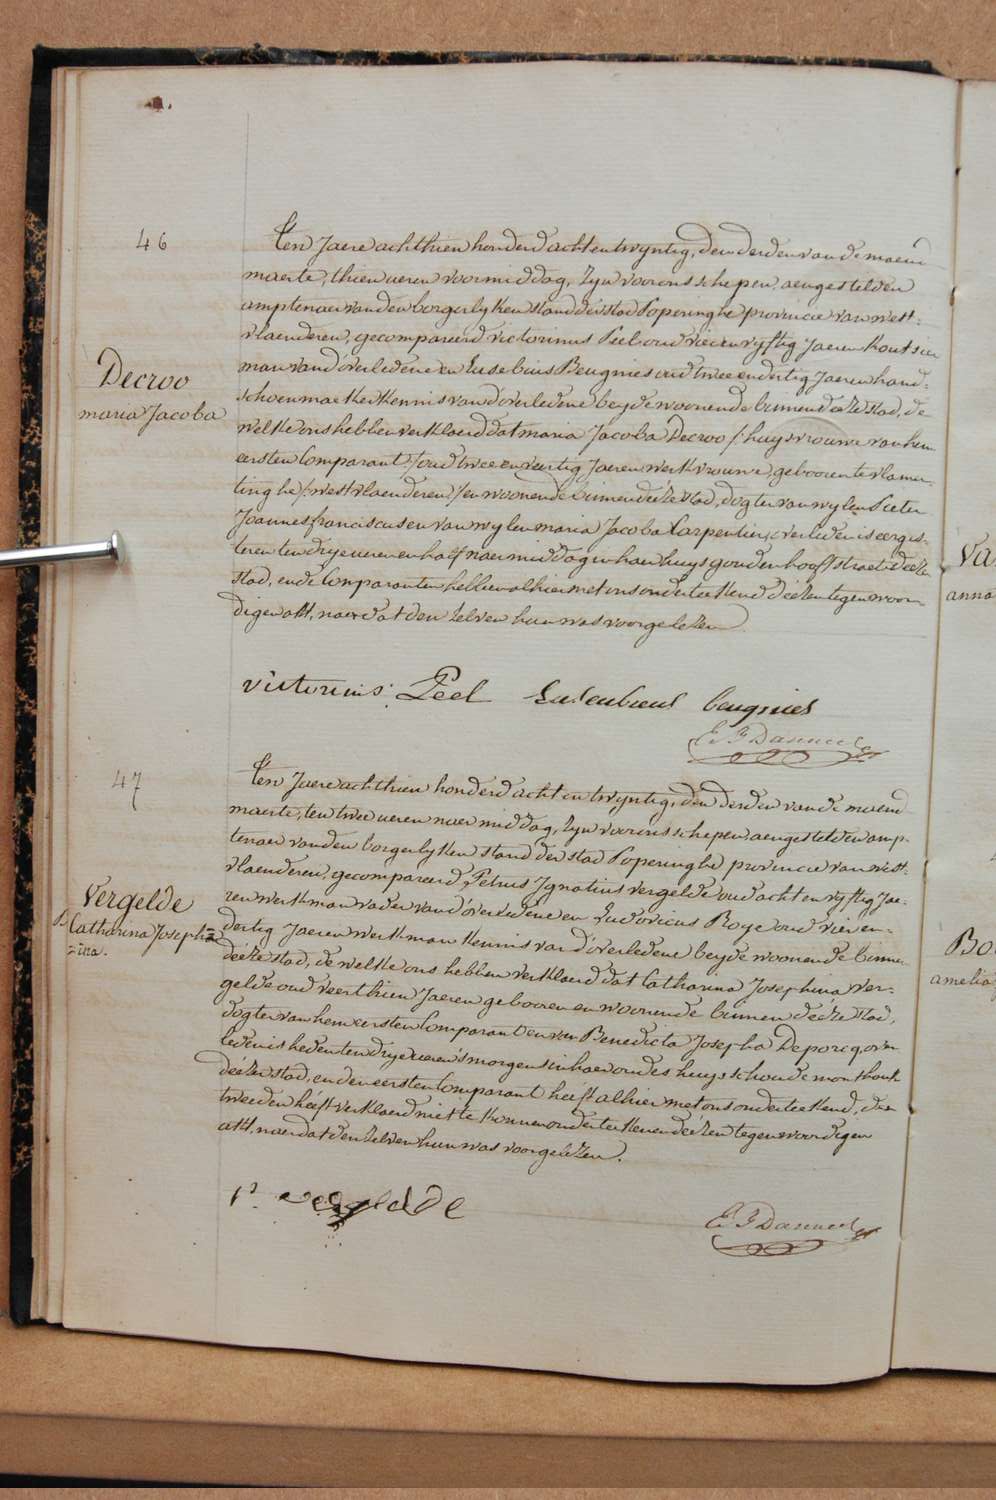 46
Decroo
maria Jacoba
Ten Jaere achthien honderd acht en twyntig, den derden van de maend
maerte, thien ueren voormiddag, zyn voor ons schepen, aengestelden
amptenaer van den borgerlyken stand der stad Poperinghe provincie van west-
vlaenderen, gecompareerd victorinus Peel oud vier en vyftig Jaeren
man van d'overledene en Eusebius Beugnies oud twee en dertig Jaeren hand-
schoenmaeker kennis van d'overledene beyde woonende binnen deéze stad, de
welke ons hebben verklaerd dat maria Jacoba Decroo /: huysvrouwe van hem
eersten Comparant :/ oud twee en veertig Jaeren werkvrouwe, gebooren te vlamer-
tinghe /: westvlaenderen :/ en woonende binnen deéze stad, dogter van wylen Pieter
Joannes franciscus en van wylen maria Jacoba Carpentier, overleden is eergis-
teren ten drye ueren en half naermiddag in haer huys gouden hooft straete deéze
stad, en de Comparanten hebben alhier met ons onderteekend deézen tegenwoor-
digen akt, naer dat den zelven hun was voorgelezen.
victorinus Peel Euseubeus beugnies
E F Danneel
47
Vergelde
Catharina Joseph
ina.
Ten Jaere achthien honderd acht en twyntig, den derden van de maend
maerte, ten twee ueren naermiddag, zyn voor ons schepen, aengestelden amp-
tenaer van den borgerlyken stand der stad Poperinghe provincie van west-
vlaenderen, gecompareerd Petrus Ignatius vergelde oud acht en vyftig Jae-
ren werkman vader van d'overledene en Ludovicus Roye oud vier en
dertig Jaeren werkman kennis van d'overledene beyde woonende binnen
deéze stad, de welke ons hebben verklaerd dat Catharina Josephina ver-
gelde oud veerthien Jaeren gebooren en woonende binnen deéze stad,
dogter van hem eersten Comparant en van Benedicta Josepha Deporcq, over
leden is heden ten drye ueren 's morgens in haer ouders huys schoudemonthoek
deézer stad, en den eersten Comparant heéft alhier met ons onderteekend, den
tweeden heéft verklaerd niet te konnen onderteekenen deézen tegenwoordigen
akt, naer dat den zelven hun was voorgelézen.
P. vergelde
E F Danneel
Va
anna
Bo
amelia